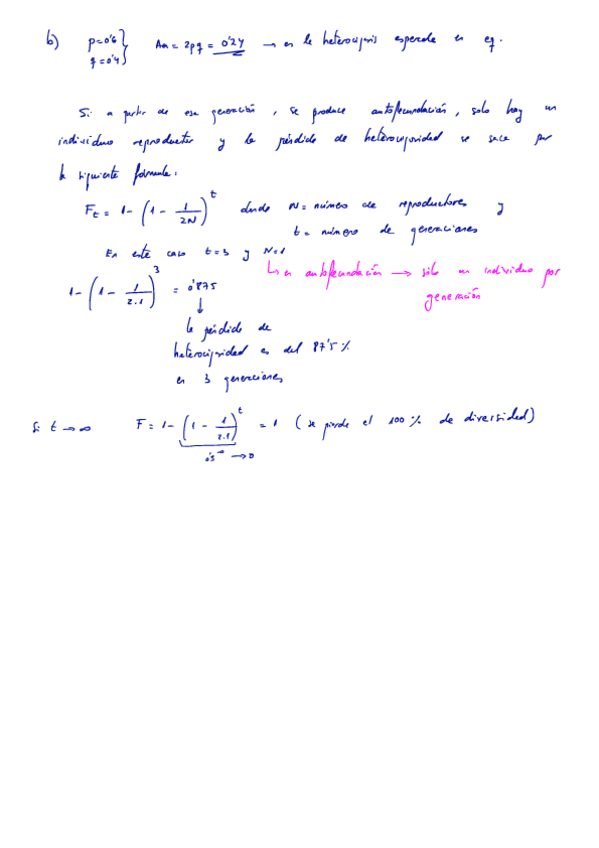 b) p=0'6 } Aa = 2pq = 0'24 → es la heterocigosis esperada en eq.
q=0'4 }
Si a partir de esa generación, se produce autofecundación, solo hay un
individuo reproductor y la pérdida de heterocigosidad se saca por
la siguiente fórmula:
F_t = 1 - (1 - 1/2N)^t donde N = número de reproductores y
t = número de generaciones
En este caso t=3 y N=1
↳ en autofecundación → sólo un individuo por
generación
1 - (1 - 1/2.1)^3 = 0'875
↓
la pérdida de
heterocigosidad es del 87'5 %
en 3 generaciones
Si t → ∞ F = 1 - (1 - 1/2.1)^t = 1 (se pierde el 100 % de diversidad)
0'5^∞ → 0